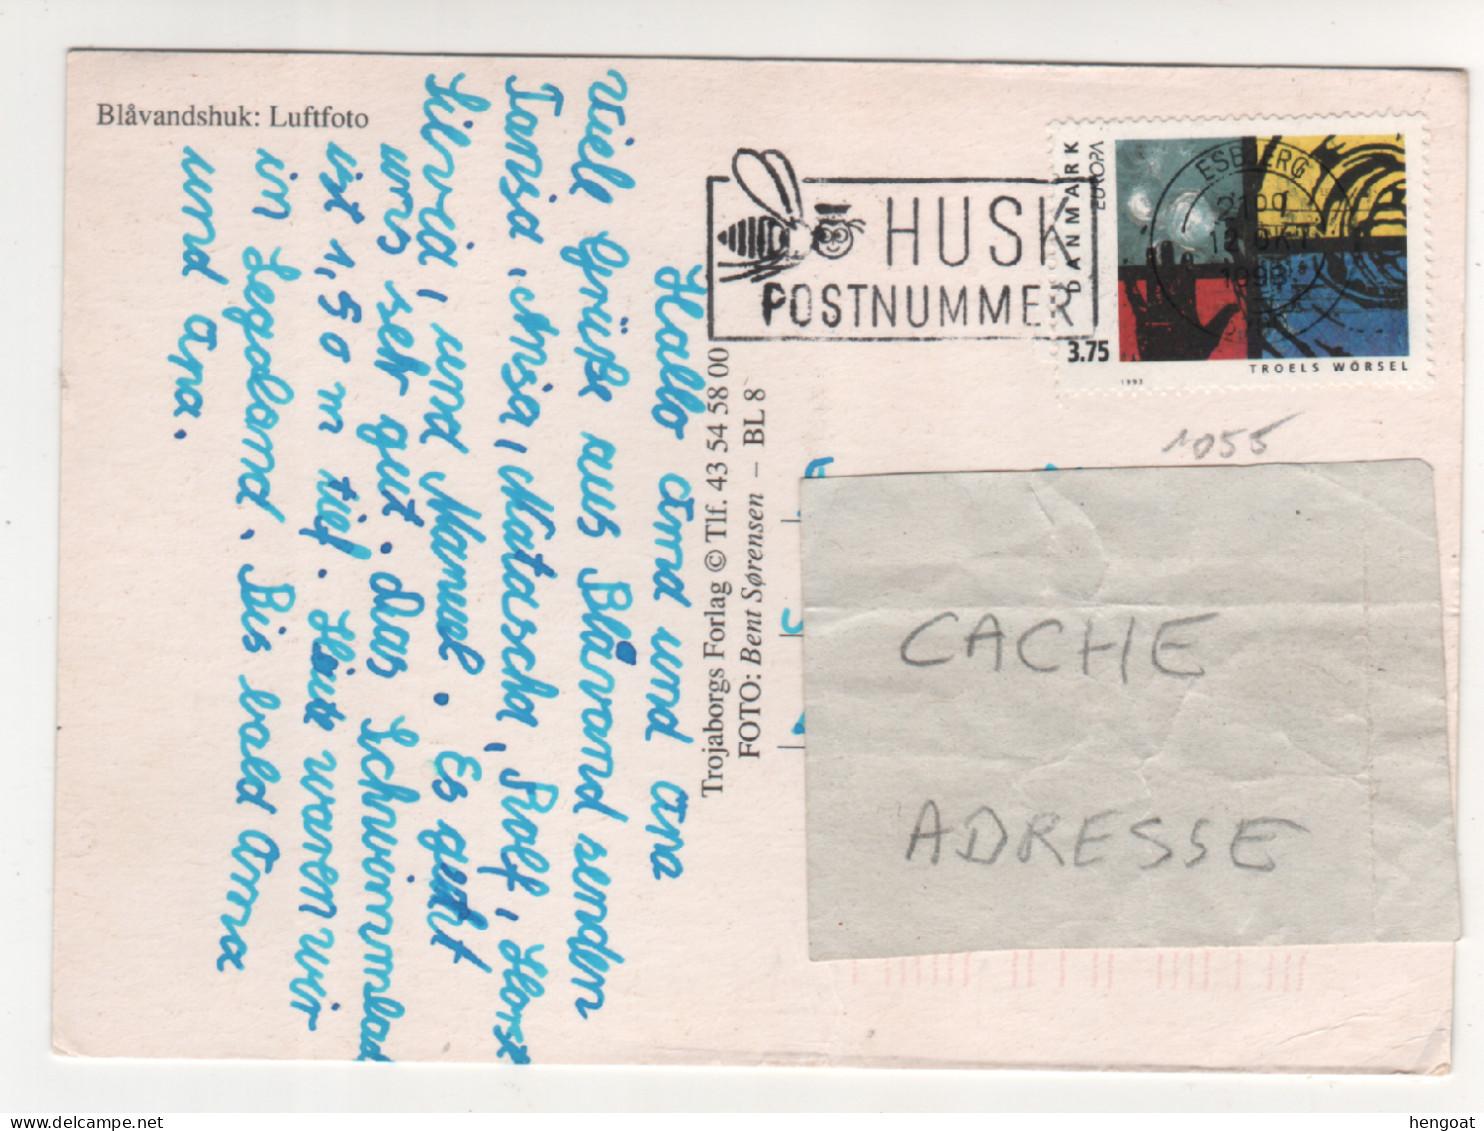 Blåvandshuk: Luftfoto
HUSK
POSTNUMMER
DANMARK
EUROPA
3.75
1993
TROELS WÖRSEL
ESBJERG
2100
12 OKT
1993
1055
Trojaborgs Forlag © Tlf. 43 54 58 00
FOTO: Bent Sørensen – BL 8
Hallo Oma und Opa
Viele Grüße aus Blåvand senden
Tanja, Anja, Natascha, Rolf, Horst
Silvia, und Manuel. Es geht
uns sehr gut. Das Schwimmbad
ist 1,50 m tief. Heute waren wir
in Legoland. Bis bald Oma
und Opa.
CACHE
ADRESSE
hengoat
Delcampe.net